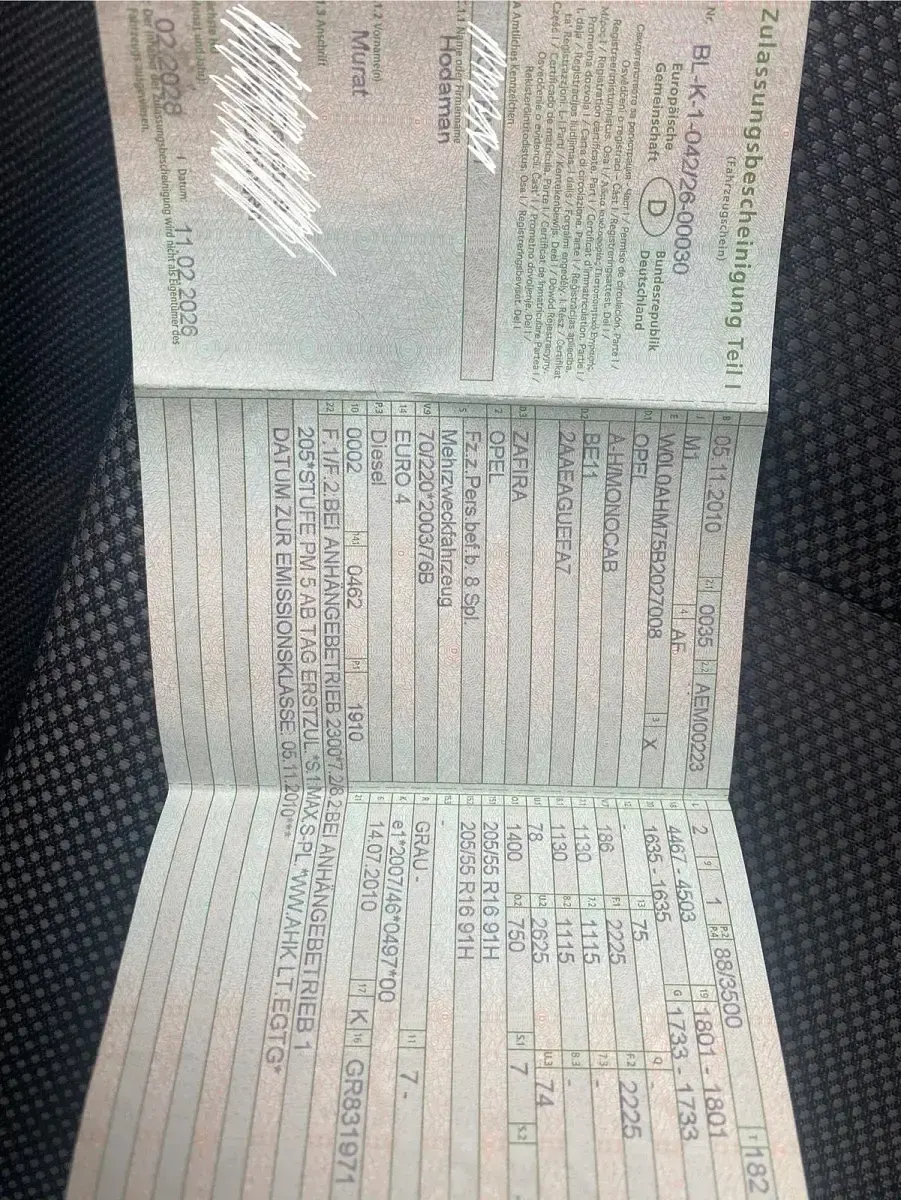 Zulassungsbescheinigung Teil I
(Fahrzeugschein)
Nr. BL-K-1-042/26-00030
Europäische
Gemeinschaft
D
Bundesrepublik
Deutschland
A Amtliches Kennzeichen
C.1.1 Name oder Firmenname
Hodaman
Murat
Anschrift
02.2028
Datum:
11.02.2026
B 05.11.2010 2.1 0035 2.2 AEM00223
J M1 4 AF
E W0L0AHM75B2027008 3 X
D.1 OPEL
A-H/MONOCAB
D.2 BE11
2AAEAGUEFA7
D.3 ZAFIRA
2 OPEL
5 Fz.z.Pers.bef.b. 8 Spl.
Mehrzweckfahrzeug
V.9 70/220*2003/76B
14 EURO 4
P.3 Diesel
10 0002 14.1 0462 P.1 1910
22 F.1/F.2:BEI ANHÄNGEBETRIEB 2300*7.2/8.2:BEI ANHÄNGEBETRIEB 1
205*STUFE PM 5 AB TAG ERSTZUL.*S.1:MAX.S-PL.*WW.AHK LT. EGTG*
DATUM ZUR EMISSIONSKLASSE: 05.11.2010***
L 2 9 1 P.2 P.4 88/3500 T 182
18 4467 - 4503 19 1801 - 1801
20 1635 - 1635 G 1733 - 1733
12 - 13 75 Q -
V.7 186 F.1 2225 F.2 2225
7.1 1130 7.2 1115 7.3 -
8.1 1130 8.2 1115 8.3 -
U.1 78 U.2 2625 U.3 74
O.1 1400 O.2 750 S.1 7 S.2 -
15.1 205/55 R16 91H
15.2 205/55 R16 91H
15.3 -
R GRAU - 11 7 -
K e1*2007/46*0497*00
6 14.07.2010 17 K 16 GR831971
21